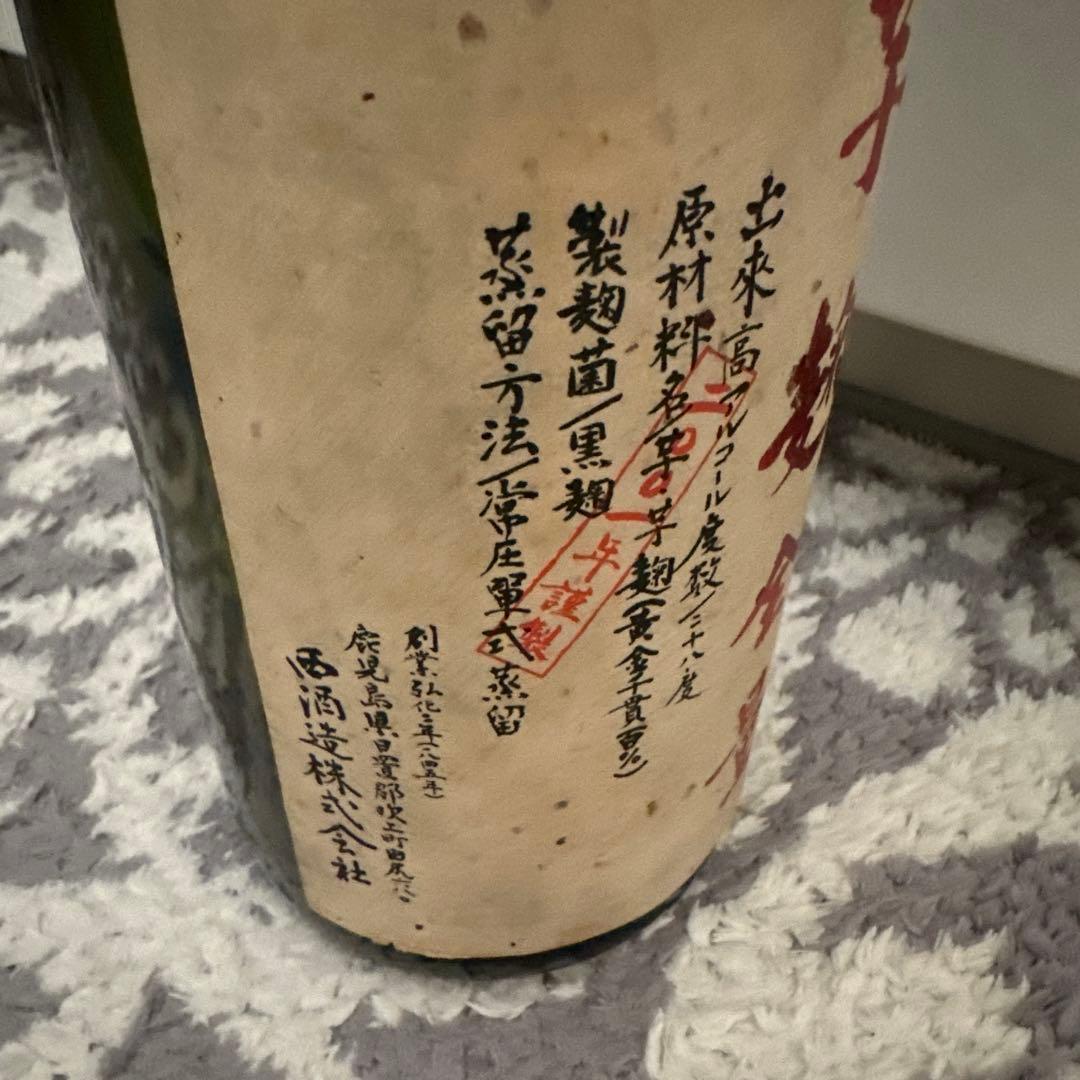 芋
麹
出來高アルコール度数/二十八度
原材料名/芋・芋麹(黄金千貫百%)
製麹菌/黒麹
蒸留方法/常圧單式蒸留
二〇〇一年謹製
創業弘化二年(一八四五年)
鹿児島県日置郡吹上町田尻六八〇
西酒造株式会社